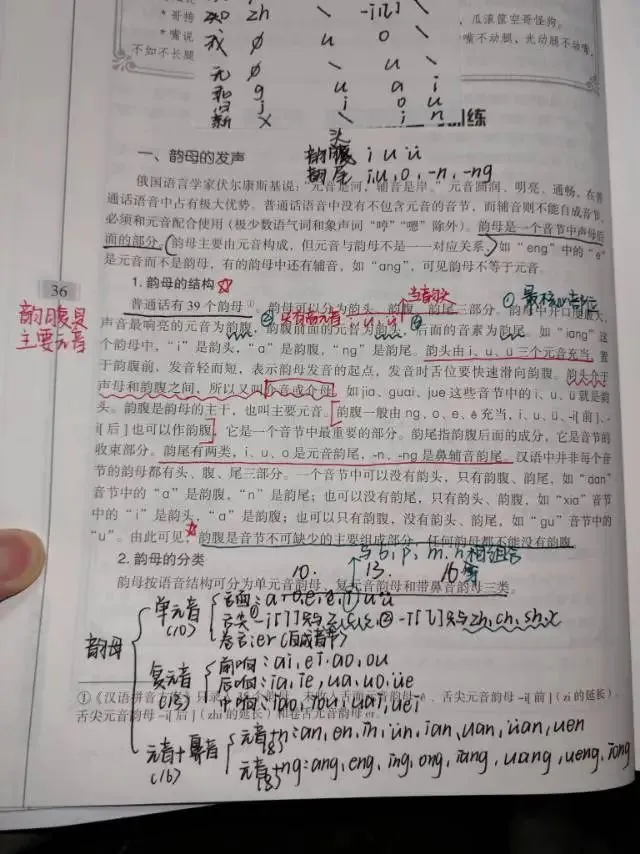 知 zh \ -i[ʅ] \
我 ø u o \
无 ø \ u \
g u a i
j i o u
新 x \ i n
*哥挎瓜筐过宽沟,瓜滚筐空哥怪狗。
*嘴说
嘴不动腿,光动腿不动嘴,
不如不长腿
训练
头
韵腹 i u ü
韵尾 i,u,o,-n,-ng
一、韵母的发声
俄国语言学家伏尔康斯基说:“元音是河,辅音是岸。”元音圆润、明亮、通畅,在普
通话语音中占有极大优势。普通话语音中没有不包含元音的音节,而辅音则不能自成音节,
必须和元音配合使用(极少数语气词和象声词“哼”“嗯”除外)。韵母是一个音节中声母后
面的部分。韵母主要由元音构成,但元音与韵母不是一一对应关系,如“eng”中的“e”
是元音而不是韵母,有的韵母中还有辅音,如“ang”,可见韵母不等于元音。
36
1. 韵母的结构
① 最核心部位
普通话有39个韵母①。韵母可以分为韵头、韵腹、韵尾三部分。韵母中开口度最大、
韵腹是
主要元音
② 只有高元音 i u ü 当韵头
声音最响亮的元音为韵腹,韵腹前面的元音为韵头,后面的音素为韵尾。如“iang”这
个韵母中,“i”是韵头,“a”是韵腹,“ng”是韵尾。韵头由i、u、ü三个元音充当,置
于韵腹前、发音轻而短,表示韵母发音的起点,发音时舌位要快速滑向韵腹。韵头介于
声母和韵腹之间,所以又叫介音或介母,如jia、guai、jue这些音节中的i、u、ü就是韵
头。韵腹是韵母的主干,也叫主要元音。韵腹一般由ɑ、o、e、ê充当,i、u、ü、-i[前]、-
i[后]也可以作韵腹,它是一个音节中最重要的部分。韵尾指韵腹后面的成分,它是音节的
收束部分。韵尾有两类,i、u、o是元音韵尾,-n、-ng是鼻辅音韵尾。汉语中并非每个音
节的韵母都有头、腹、尾三部分。一个音节中可以没有韵头,只有韵腹、韵尾,如“dan”
音节中的“a”是韵腹,“n”是韵尾;也可以没有韵尾,只有韵头、韵腹,如“xia”音节
中的“i”是韵头,“a”是韵腹;也可以只有韵腹,没有韵头、韵尾,如“gu”音节中的
“u”。由此可见,韵腹是音节不可缺少的主要组成部分,任何韵母都不能没有韵腹。
2. 韵母的分类
与b,p,m,n相组合
10. 13. 16.
韵母按语音结构可分为单元音韵母、复元音韵母和带鼻音韵母三类。
韵母
单元音 (10)
舌面:a,o,e,ê,i,u,ü
舌尖 ①-i[ɿ]只与z,c,s,②-i[ʅ]只与zh,ch,sh,r
卷舌:er(自成音节)
复元音 (13)
前响:ai,ei,ao,ou
后响:ia,ie,ua,uo,üe
中响:iao,iou,uai,uei
元音+鼻音 (16)
元音+n:an,en,in,ün,ian,uan,üan,uen
(8)
元音+ng:ang,eng,ing,ong,iang,uang,ueng,iong
(8)
①《汉语拼音方案》只示 35 个韵母,未收入舌面元音韵母-ê、舌尖元音韵母-i[前](zi的延长)、
舌尖元音韵母-i[后](zhi的延长)和卷舌元音韵母er。